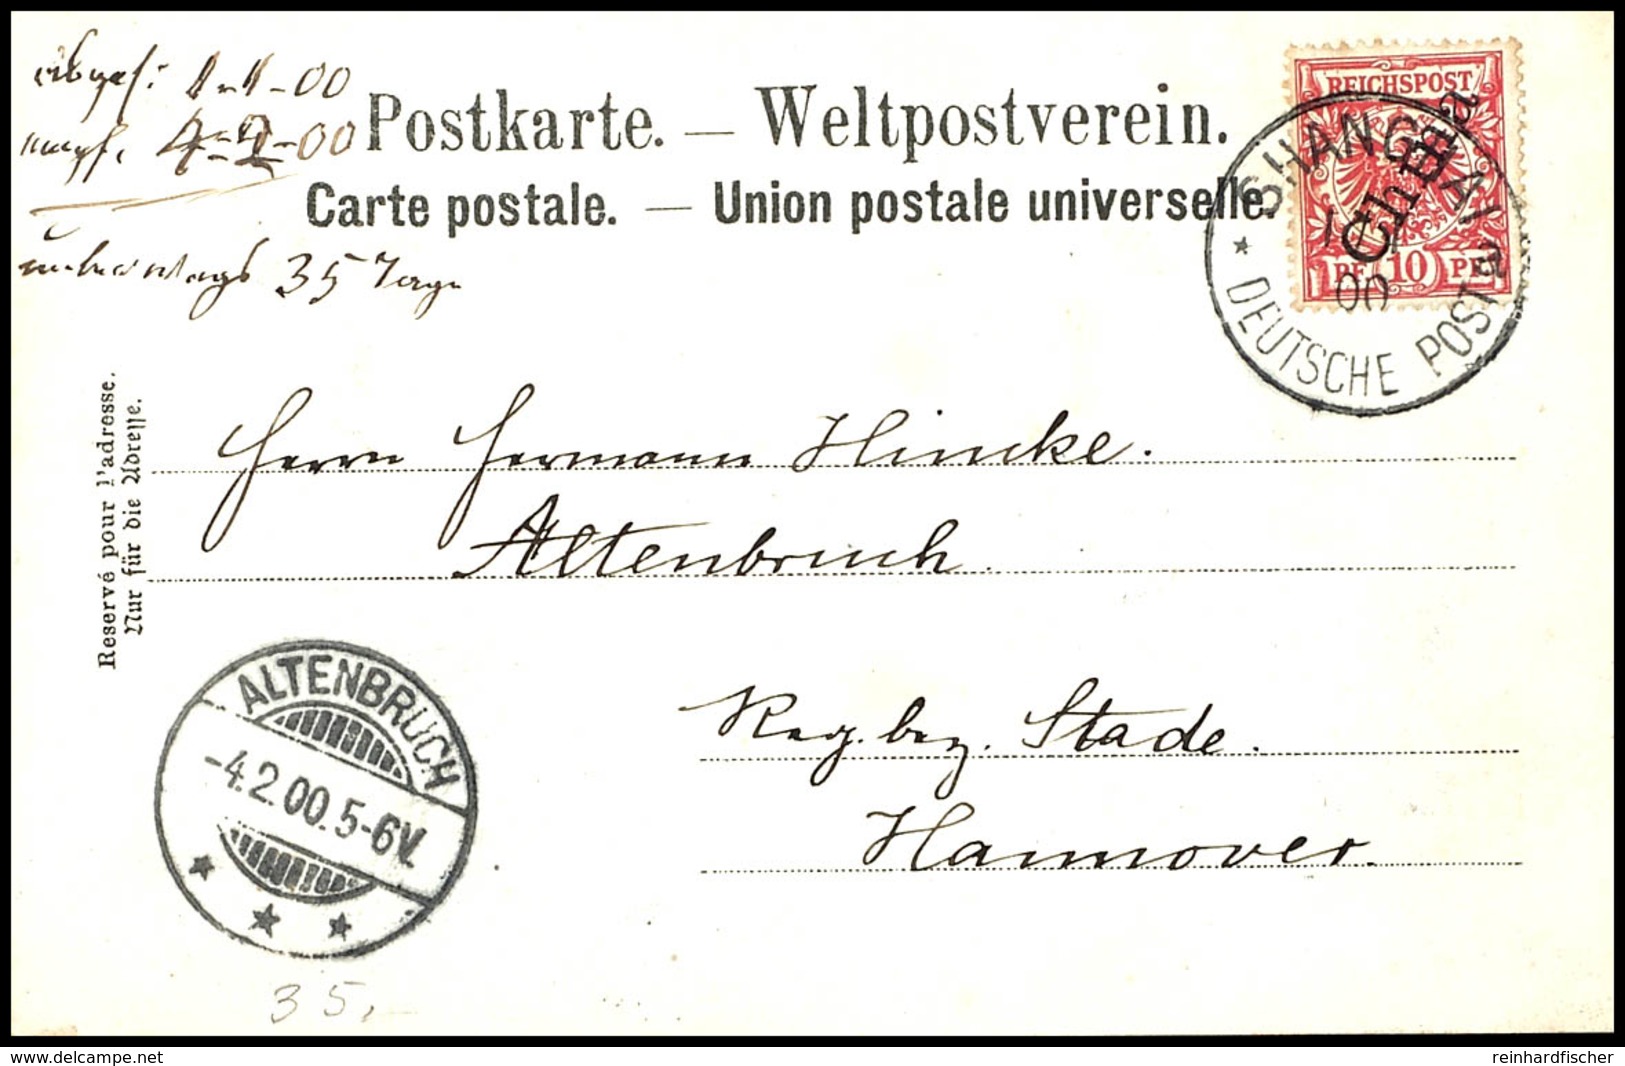 abges: 1-1-00
empf. 4-2-00
35 Tage
Postkarte. — Weltpostverein.
Carte postale. — Union postale universelle.
REICHSPOST
China
PF 10 PF
SHANGHAI
1/1
00
* DEUTSCHE POST a
Reservé pour l'adresse.
Nur für die Adresse.
Herrn Hermann Hincke.
Altenbruch.
Reg. bez. Stade.
Hannover.
ALTENBRUCH
-4.2.00.5-6V.
35,-
www.delcampe.net
reinhardfischer